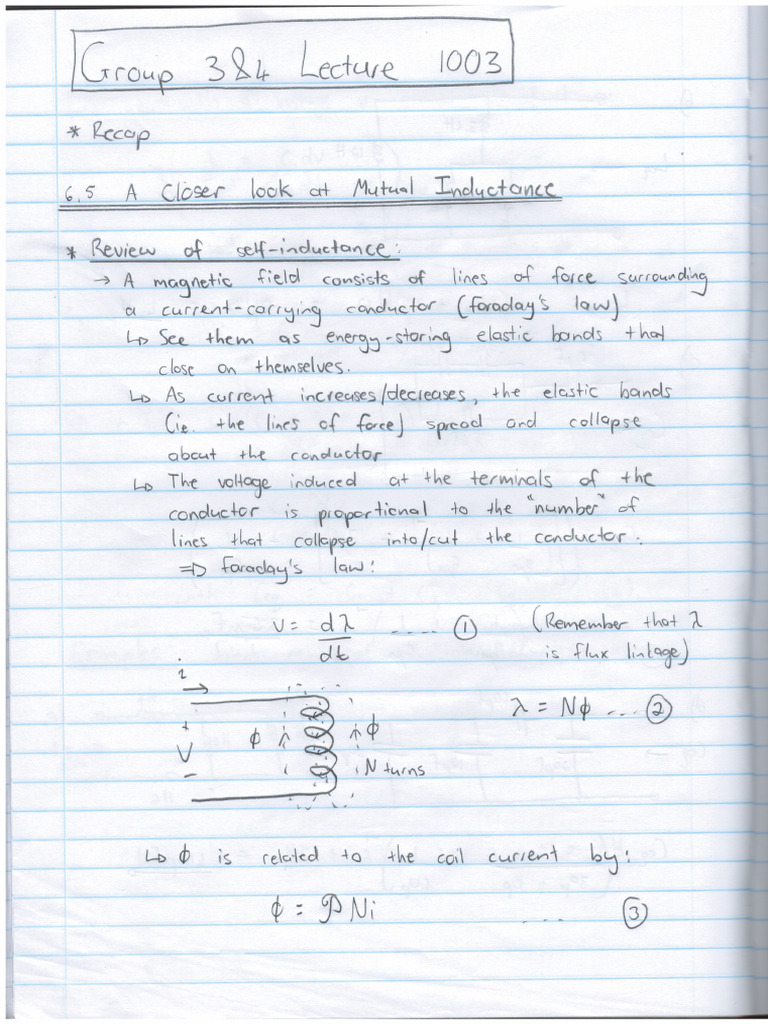 Group 3&4 Lecture 1003
* Recap
6.5 A Closer look at Mutual Inductance
* Review of self-inductance:
→ A magnetic field consists of lines of force surrounding
a current-carrying conductor (faraday's law)
↳ See them as energy-storing elastic bands that
close on themselves.
↳ As current increases/decreases, the elastic bands
(ie. the lines of force) spread and collapse
about the conductor
↳ The voltage induced at the terminals of the
conductor is proportional to the "number" of
lines that collapse into/cut the conductor.
⇒ faraday's law:
v = dλ/dt ..... ① (Remember that λ
is flux linkage)
i →
λ = Nφ .... ②
+
V
-
φ φ
N turns
↳ φ is related to the coil current by:
φ = 𝒫Ni .... ③